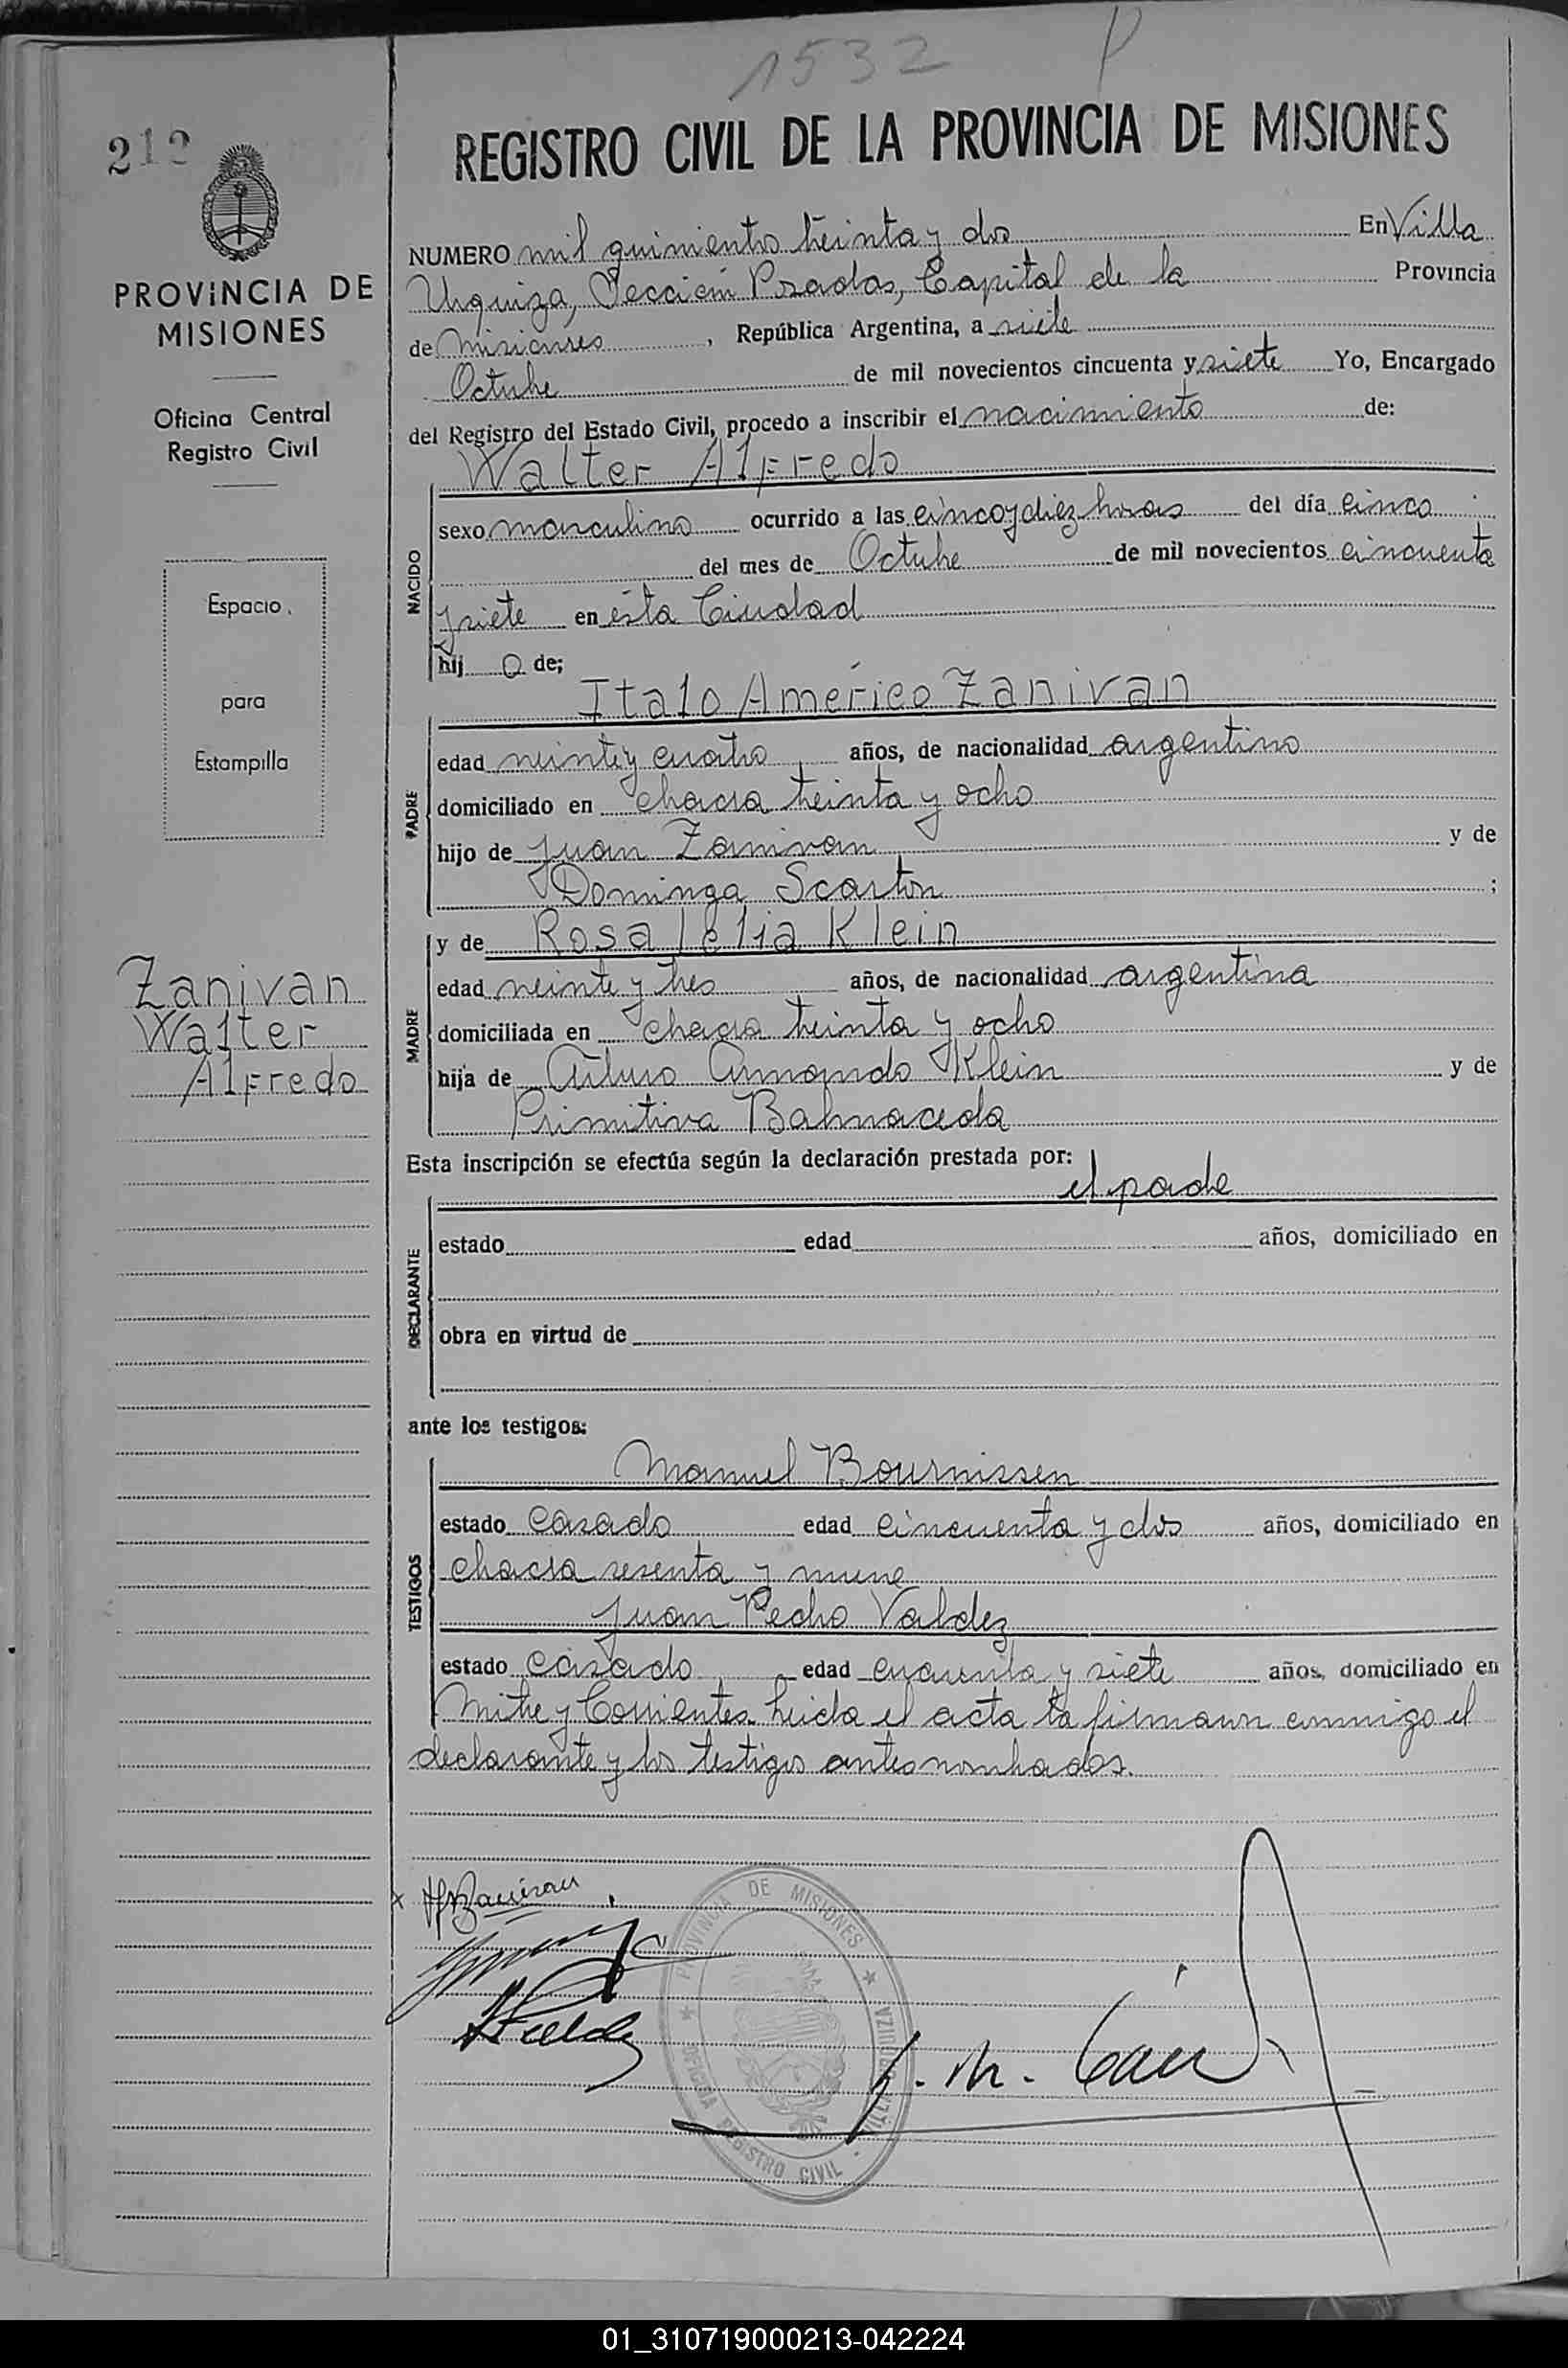 1532 P
212
PROVINCIA DE
MISIONES
Oficina Central
Registro Civil
Espacio
para
Estampilla
Zanivan
Walter
Alfredo
REGISTRO CIVIL DE LA PROVINCIA DE MISIONES
NUMERO mil quinientos treinta y dos En Villa
Urquiza, Sección Posadas, Capital de la Provincia
de Misiones, República Argentina, a siete
Octubre de mil novecientos cincuenta y siete Yo, Encargado
del Registro del Estado Civil, procedo a inscribir el nacimiento de:
Walter Alfredo
NACIDO
sexo masculino ocurrido a las cinco y diez horas del día cinco
del mes de Octubre de mil novecientos cincuenta
y siete en ésta Ciudad
hij o de;
Italo Américo Zanivan
PADRE
edad veinte y cuatro años, de nacionalidad argentino
domiciliado en chacra treinta y ocho
hijo de Juan Zanivan y de
Dominga Scarton ;
y de Rosa lelia Klein
MADRE
edad veinte y tres años, de nacionalidad argentina
domiciliada en chacra treinta y ocho
hija de Arturo Armando Klein y de
Primitiva Balmaceda
Esta inscripción se efectúa según la declaración prestada por:
el padre
DECLARANTE
estado edad años, domiciliado en
obra en virtud de
ante los testigos:
Manuel Bournissen
TESTIGOS
estado casado edad cincuenta y dos años, domiciliado en
chacra sesenta y nueve
Juan Pedro Valdez
estado casado edad cuarenta y siete años, domiciliado en
Mitre y Corrientes. Leida el acta la firmaron conmigo el
declarante y los testigos antes nombrados.
PROVINCIA DE MISIONES
OFICINA REGISTRO CIVIL
VILLA URQUIZA
01_310719000213-042224